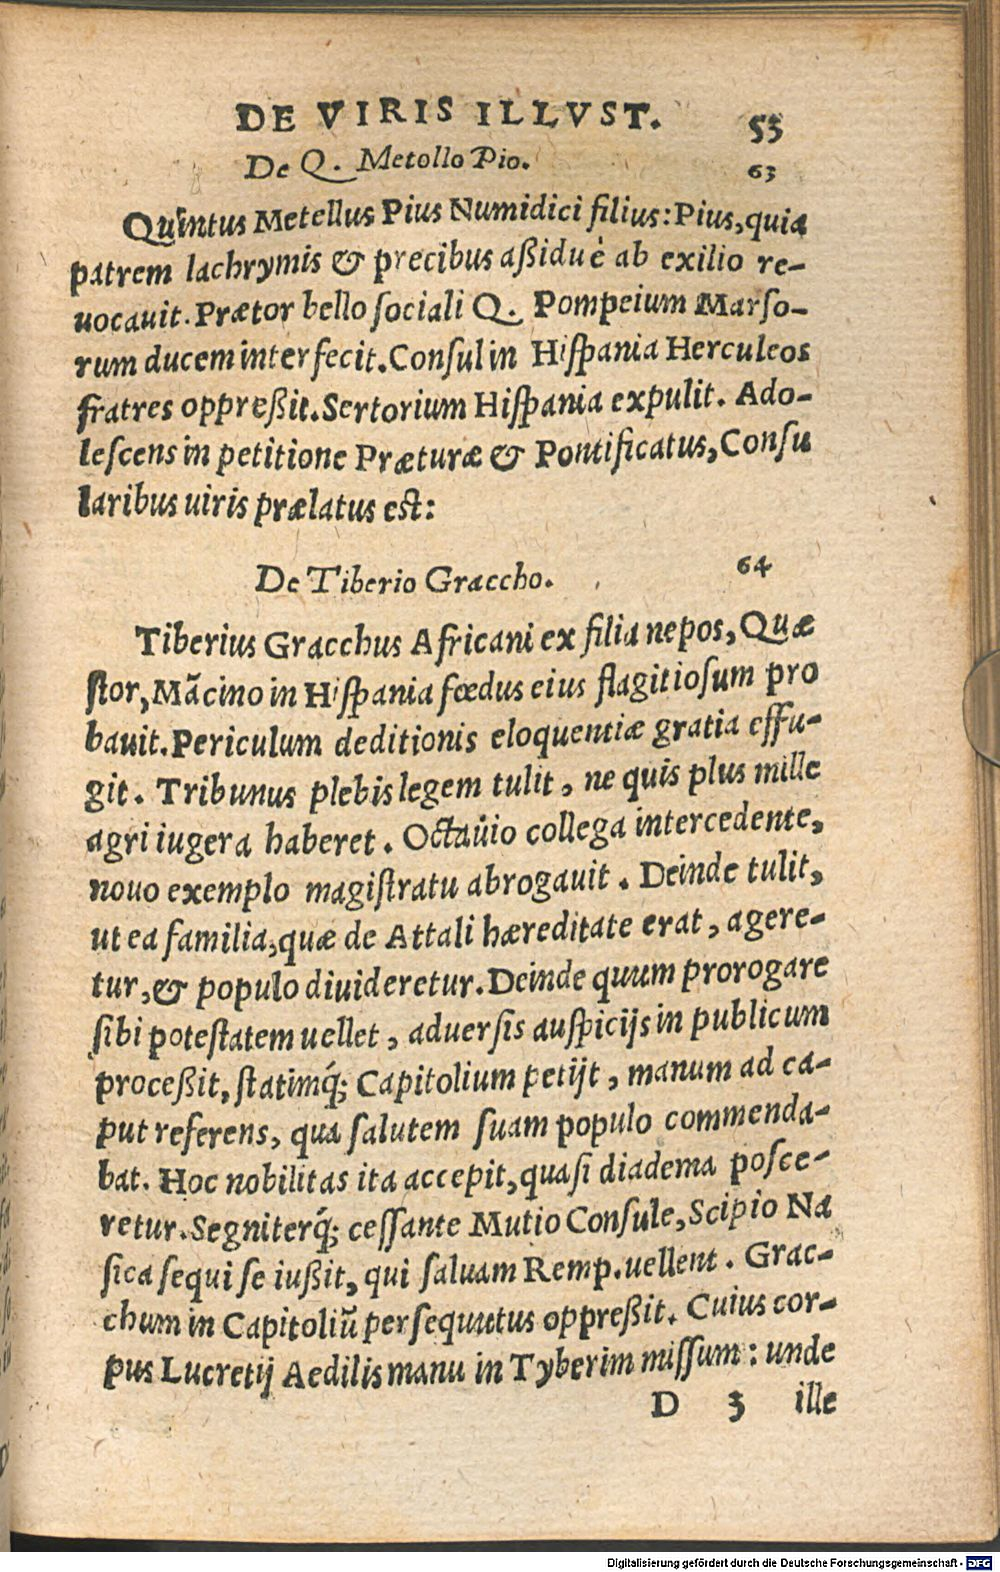 DE VIRIS ILLVST. 53
De Q. Metollo Pio. 63
Quintus Metellus Pius Numidici filius: Pius, quia
patrem lachrymis & precibus aßiduè ab exilio re-
uocauit. Prætor bello sociali Q. Pompeium Marso-
rum ducem interfecit. Consul in Hiſpania Herculeos
fratres oppreßit. Sertorium Hiſpania expulit. Ado-
leſcens in petitione Præturæ & Pontificatus, Conſu
laribus uiris prælatus eſt:
De Tiberio Graccho. 64
Tiberius Gracchus Africani ex filia nepos, Quæ
ſtor, Mācino in Hiſpania fœdus eius flagitioſum pro
bauit. Periculum deditionis eloquentiæ gratia effu-
git. Tribunus plebis legem tulit, ne quis plus mille
agri iugera haberet. Octauio collega intercedente,
nouo exemplo magiſtratu abrogauit. Deinde tulit,
ut ea familia, quæ de Attali hæreditate erat, agere-
tur, & populo diuideretur. Deinde quum prorogare
ſibi poteſtatem uellet, aduerſis auſpicijs in publicum
proceßit, ſtatimq́; Capitolium petijt, manum ad ca-
put referens, qua ſalutem ſuam populo commenda-
bat. Hoc nobilitas ita accepit, quaſi diadema poſce-
retur. Segniterq́; ceſſante Mutio Conſule, Scipio Na
ſica ſequi ſe iußit, qui ſaluam Remp. uellent. Grac-
chum in Capitoliũ perſequutus oppreßit. Cuius cor-
pus Lucretij Aedilis manu in Tyberim miſſum: unde
D 3 ille
Digitalisierung gefördert durch die Deutsche Forschungsgemeinschaft - DFG